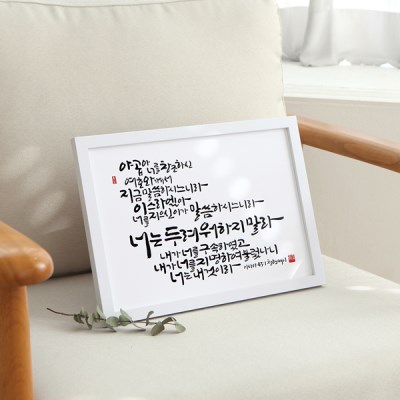 야곱아 너를 창조하신
여호와께서
지금 말씀하시느니라
이스라엘아
너를 지으신이가 말씀하시느니라
너는 두려워하지 말라
내가 너를 구속하였고
내가 너를 지명하여 불렀나니
너는 내 것이라 이사야 43:1